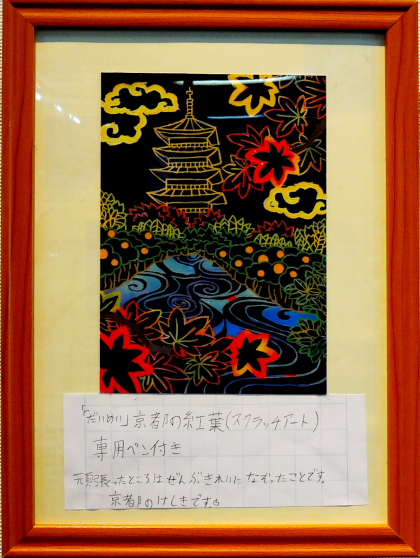 「だいめい」京都の紅葉(スクラッチアート)
専用ペン付き
元頑張ったところはぜんぶきれいになぞったことです。
京都のけしきです。